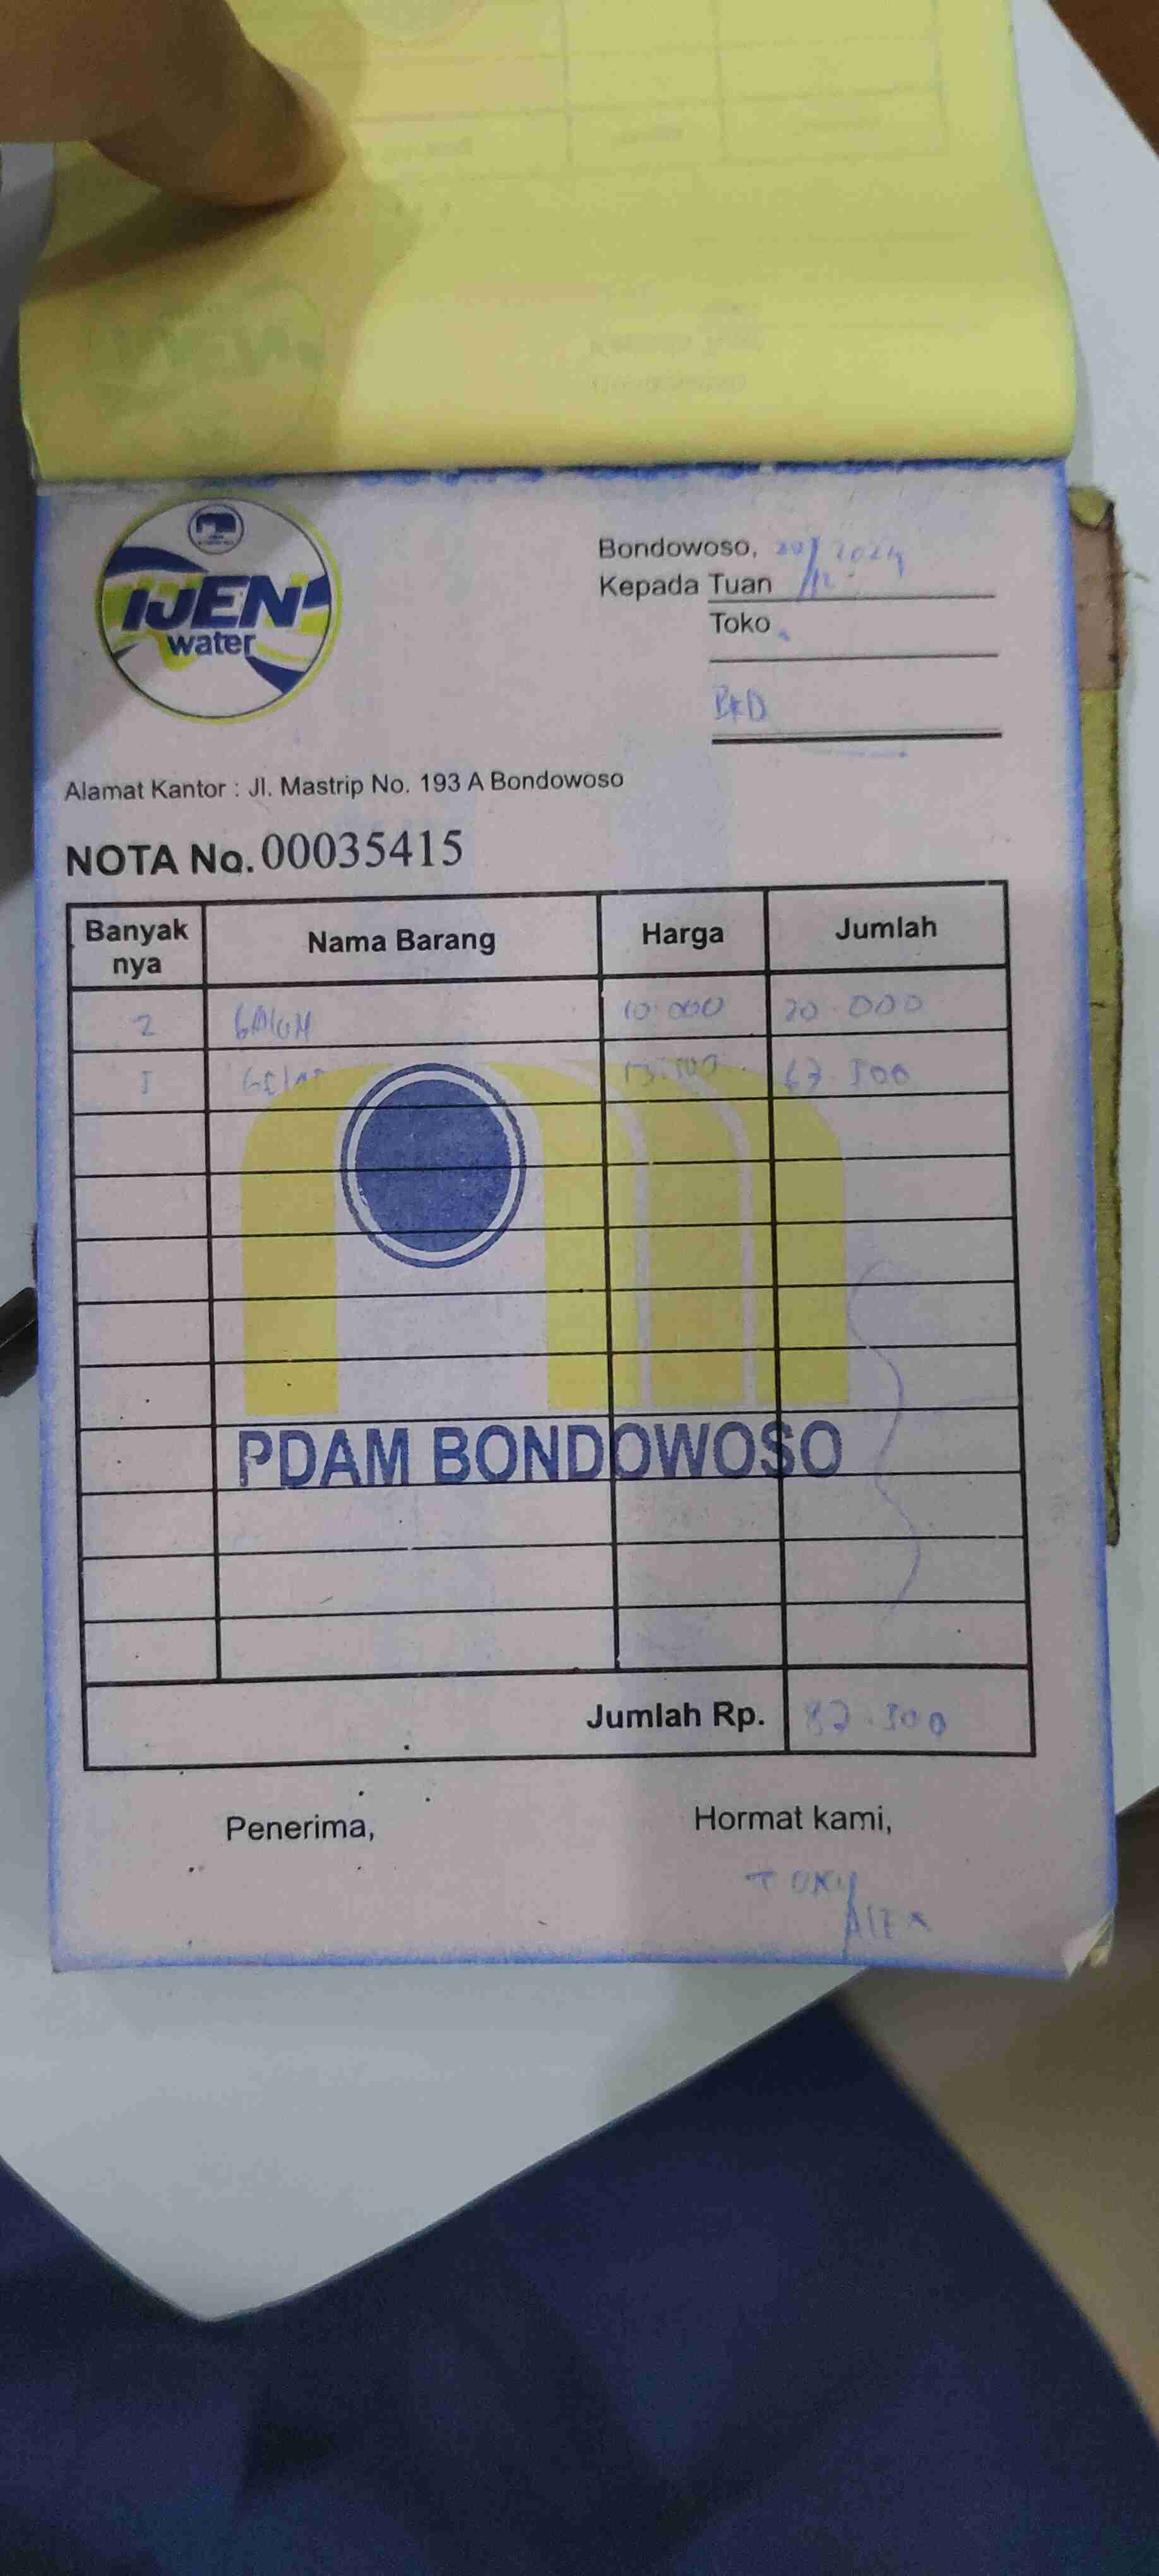 IJEN
water
Bondowoso, 20/12 2024
Kepada Tuan
Toko
BKD
Alamat Kantor : Jl. Mastrip No. 193 A Bondowoso
NOTA No. 00035415
Banyak nya Nama Barang Harga Jumlah
2 GALON 10.000 20.000
5 GELAS 13.500 67.500
PDAM BONDOWOSO
Jumlah Rp. 87.500
Penerima, Hormat kami,
TONY
ALEX